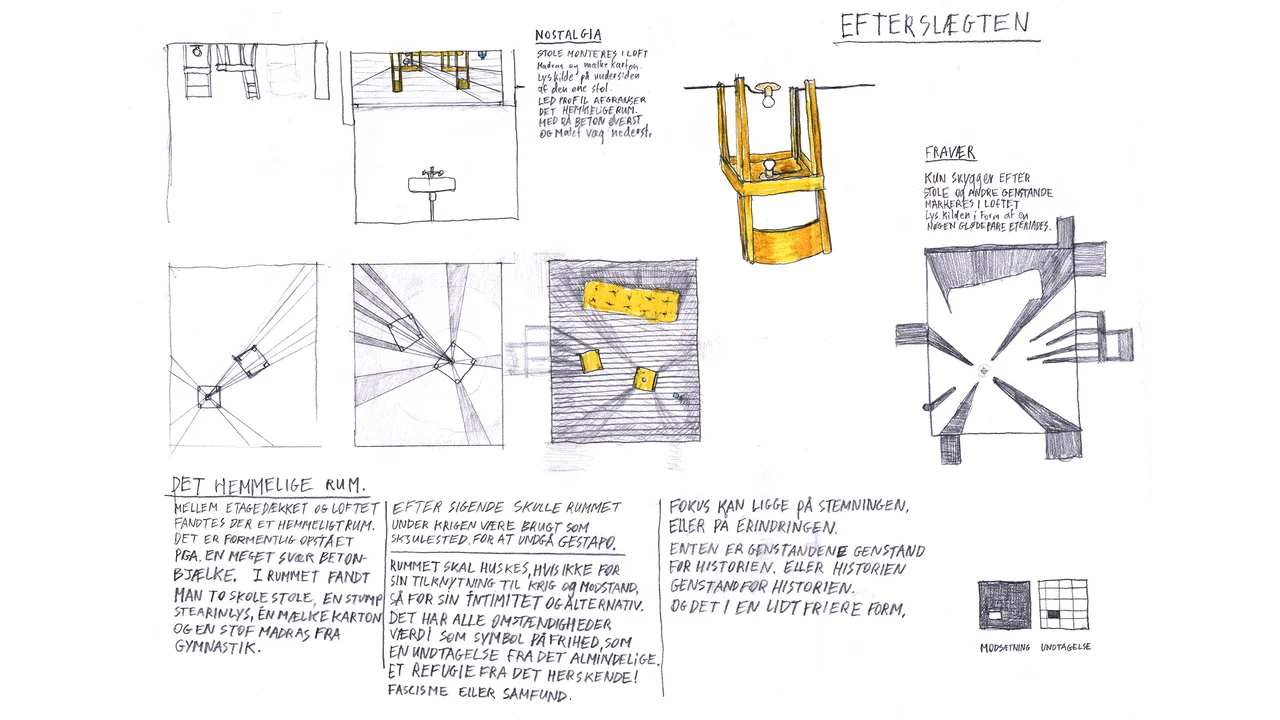 EFTERSLÆGTEN
NOSTALGIA
STOLE MONTERES I LOFT
Madras og mælkekarton.
Lyskilde på undersiden
af den ene stol.
LED PROFIL AFGRÆNSER
DET HEMMELIGE RUM.
MED RÅ BETON ØVERST
OG Malet væg nederst.
FRAVÆR
KUN Skygger EFTER
STOLE og ANDRE GENSTANDE
MARKERES I LOFTET
Lys.Kilden i Form af en
NØGEN GLØDEPÆRE
DET HEMMELIGE RUM.
MELLEM ETAGEDÆKKET OG LOFTET
FANDTES DER ET HEMMELIGT RUM.
DET ER FORMENTLIG OPSTÅET
PGA. EN MEGET SVÆR BETON-
BJÆLKE. I RUMMET FANDT
MAN TO SKOLESTOLE, EN STUMP
STEARINLYS, ÉN MÆLKE KARTON
OG EN STOF MADRAS FRA
GYMNASTIK.
EFTER SIGENDE SKULLE RUMMET
UNDER KRIGEN VÆRE BRUGT SOM
SKJULESTED. FOR AT UNDGÅ GESTAPO.
RUMMET SKAL HUSKES, HVIS IKKE FOR
SIN TILKNYTNING TIL KRIG og MODSTAND,
SÅ FOR SIN INTIMITET OG ALTERNATIV.
DET HAR ALLE OMSTÆNDIGHEDER
VÆRDI SOM SYMBOL PÅ FRIHED, SOM
EN UNDTAGELSE FRA DET ALMINDELIGE.
ET REFUGIE FRA DET HERSKENDE!
FASCISME ELLER SAMFUND.
FOKUS KAN LIGGE PÅ STEMNINGEN,
ELLER PÅ ERINDRINGEN.
ENTEN ER GENSTANDENE GENSTAND
FOR HISTORIEN. ELLER HISTORIEN
GENSTAND FOR HISTORIEN.
OG DET I EN LIDT FRIERE FORM.
MODSÆTNING
UNDTAGELSE